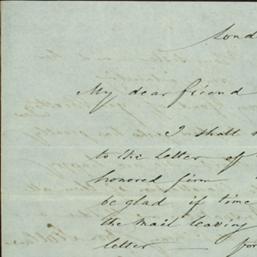 Lond
My dear friend
I shall
to the letter of
honored him
be glad if time
the mail leaving
letter — for